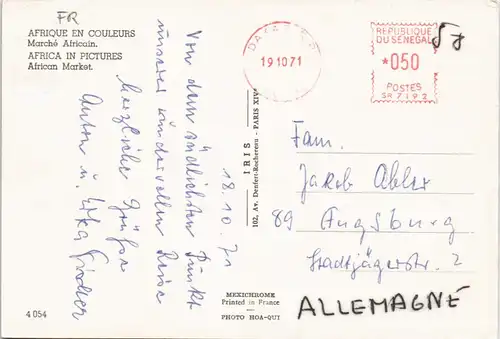 FR
AFRIQUE EN COULEURS
Marché Africain.
AFRICA IN PICTURES
African Market.
18.10.71
Von dem südlichsten Punkt
unserer wundervollen Reise
herzliche Grüße
Anton u.
4 054
IRIS
102, Av. Denfert-Rochereau - PARIS XIVe
MEXICHROME
Printed in France
PHOTO HOA-QUI
19 10 71
REPUBLIQUE
DU SENEGAL
*050
POSTES
SR 7192
Fam.
Jakob Abler
89 Augsburg
Stadtjägerstr. 2
ALLEMAGNE